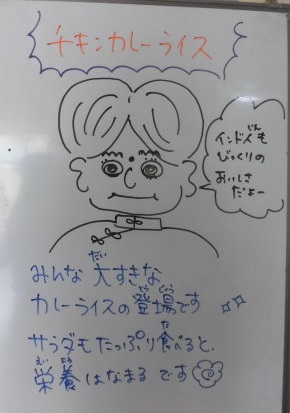 チキンカレーライス
インド人も
びっくりの
おいしさ
だよー
みんな大すきな
カレーライスの登場です
サラダもたっぷり食べると、
栄養はなまるです